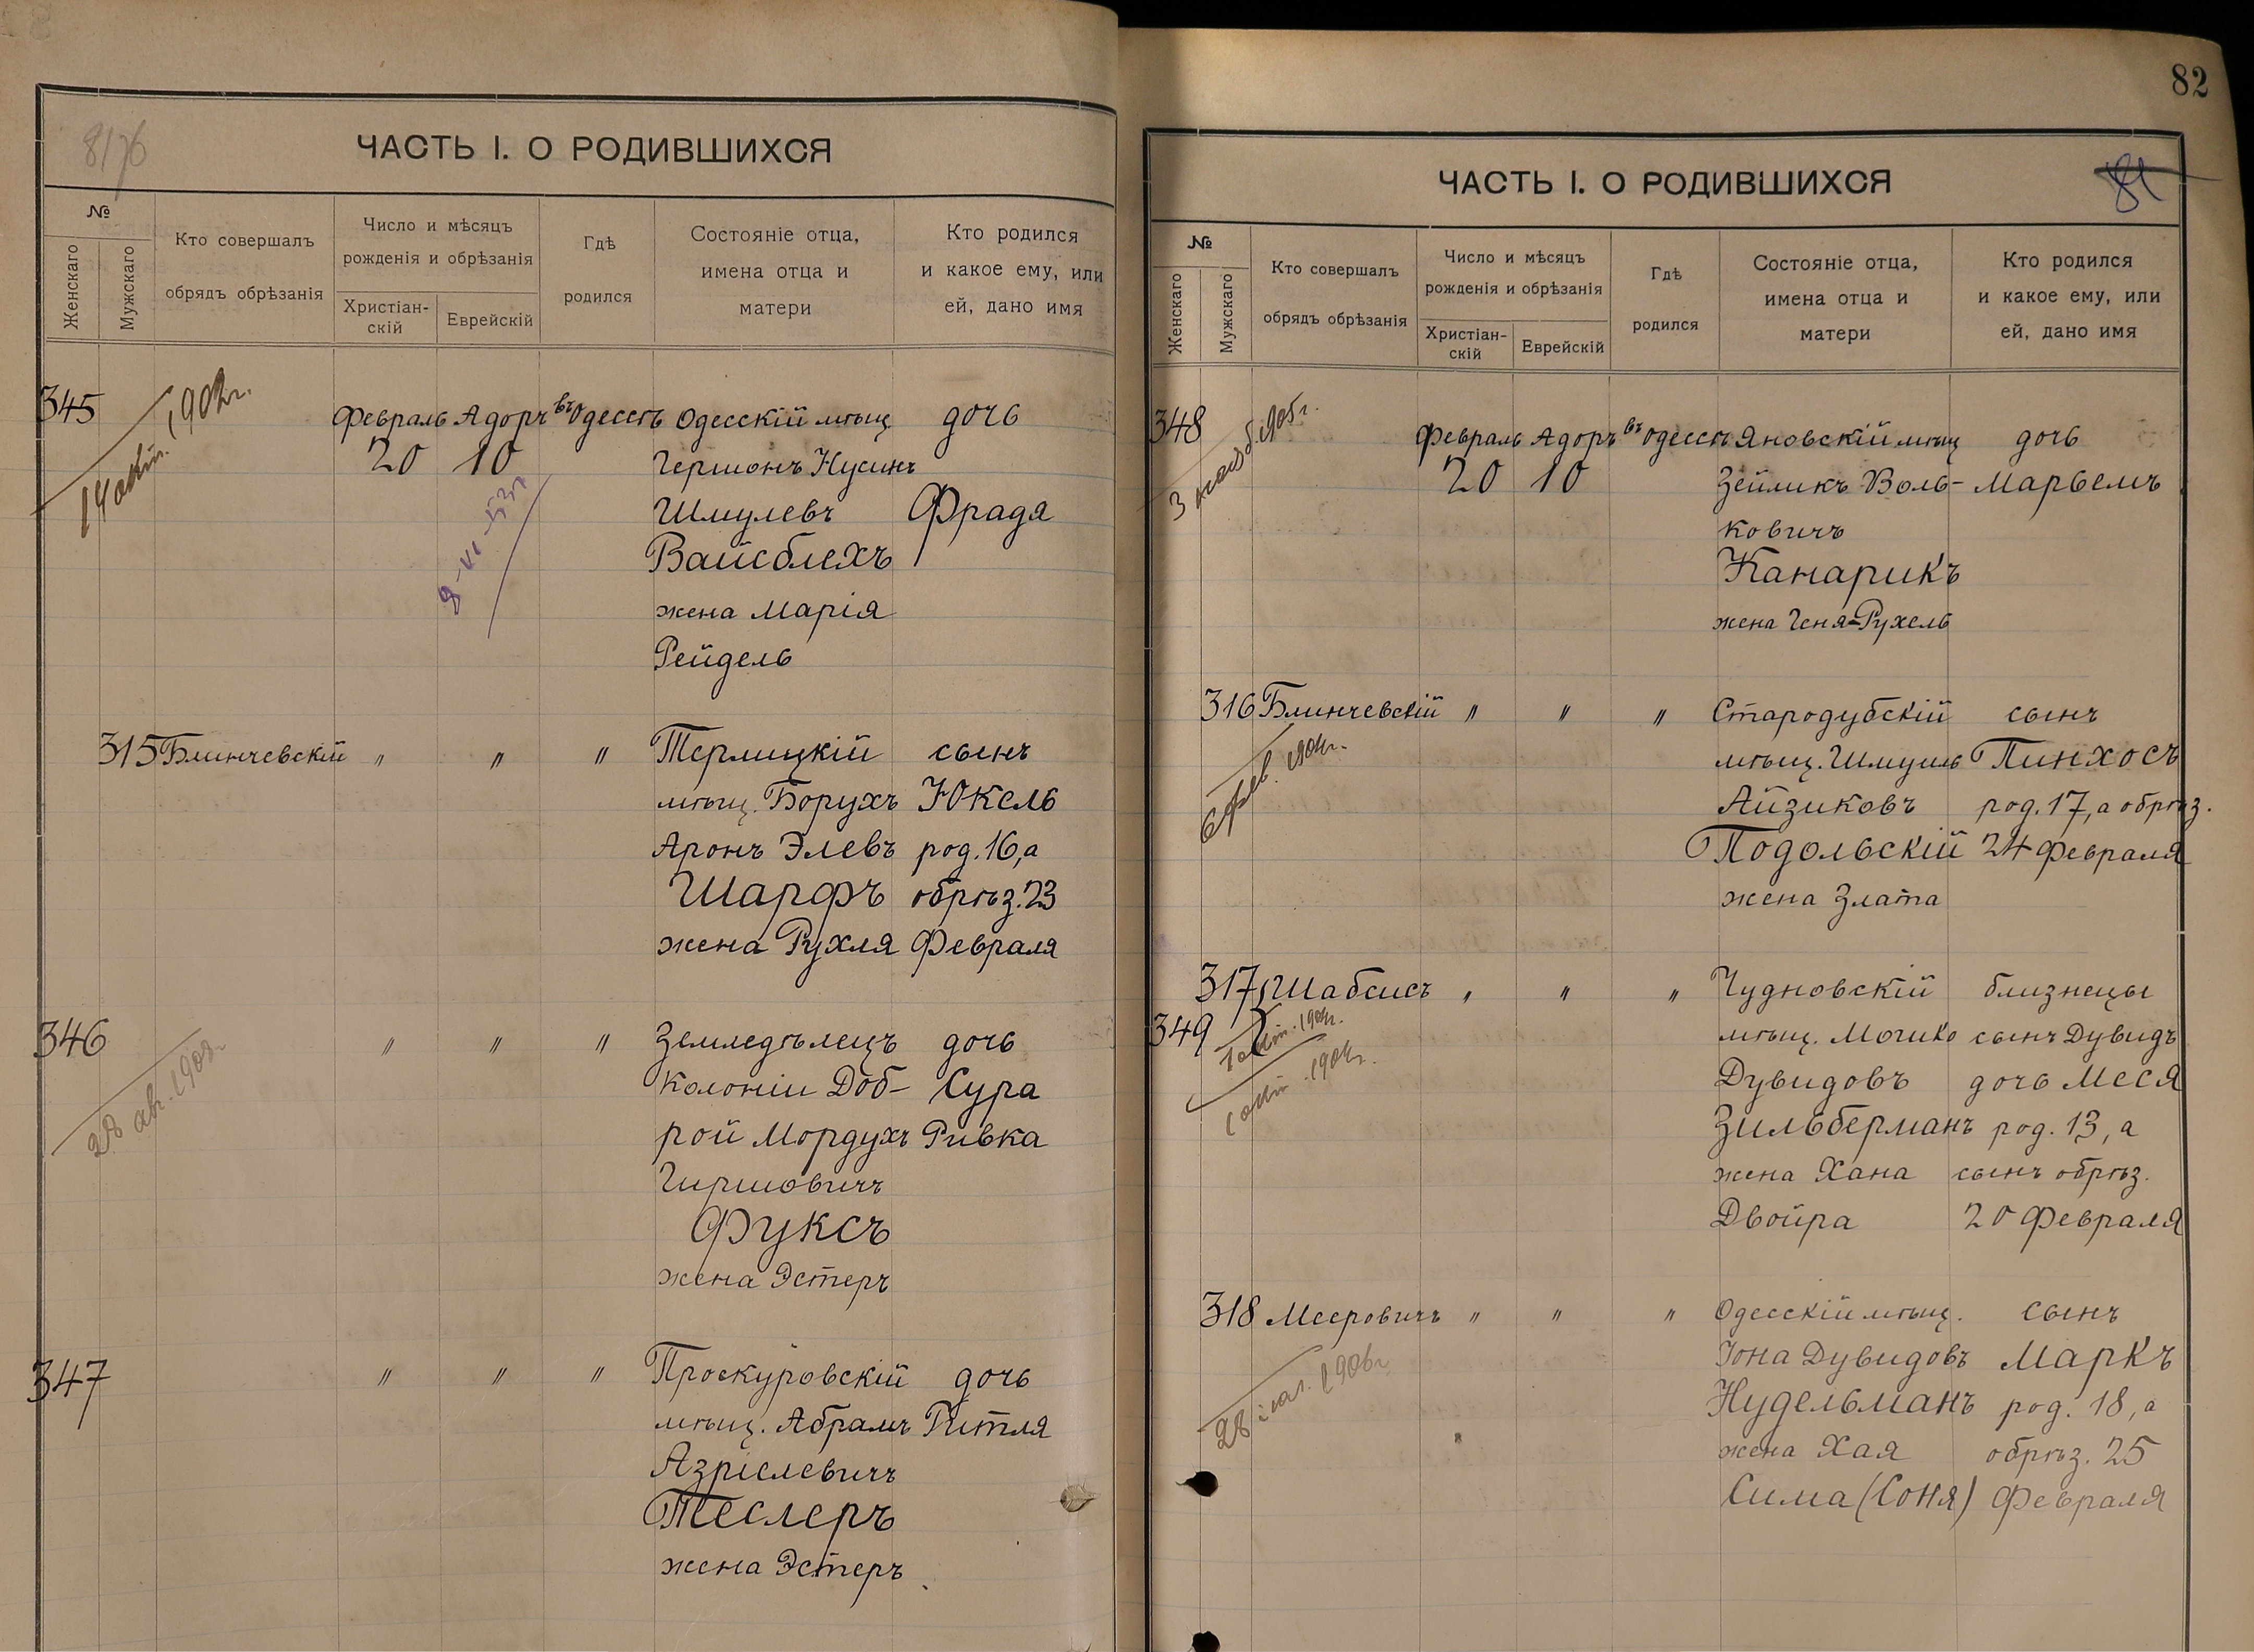 8176
ЧАСТЬ I. О РОДИВШИХСЯ
№
Женскаго
Мужскаго
Кто совершалъ
обрядъ обрѣзанія
Число и мѣсяцъ
рожденія и обрѣзанія
Христіан-
скій
Еврейскій
Гдѣ
родился
Состояніе отца,
имена отца и
матери
Кто родился
и какое ему, или
ей, дано имя
345 Февраль Адоръ въ Одессѣ Одесскій мѣщ дочь
14 окт. 1902г.
20 10 Гершонъ Нусинъ
Шмулевъ Фрадя
Вайсблехъ
9-VI-53г
жена Марія
Рейдель
315 Блинчевскій " " " Терлицкій сынъ
мѣщ. Борухъ Юкель
Аронъ Элевъ род. 16, а
Шарфъ обрѣз. 23
жена Рухля Февраля
346 " " " Земледѣлецъ дочь
28 авг. 1903г.
Колоніи Доб- Сура
рой Мордухъ Ривка
Гиршовичъ
Фуксъ
жена Эстеръ
347 " " " Проскуровскій дочь
мѣщ. Абрамъ Гитля
Азріелевичъ
Теслеръ
жена Эстеръ
82
ЧАСТЬ I. О РОДИВШИХСЯ
81
№
Женскаго
Мужскаго
Кто совершалъ
обрядъ обрѣзанія
Число и мѣсяцъ
рожденія и обрѣзанія
Христіан-
скій
Еврейскій
Гдѣ
родился
Состояніе отца,
имена отца и
матери
Кто родился
и какое ему, или
ей, дано имя
348 Февраль Адоръ въ Одессѣ Яновскій мѣщ дочь
3 1905г.
20 10 Зейликъ Воль- Марьемъ
ковичъ
Канарикъ
жена Геня-Рухель
316 Блинчевскій " " " Стародубскій сынъ
6 фев. 1904г.
мѣщ. Шмуиль Пинхосъ
Айзиковъ род. 17, а обрѣз.
Подольскій 24 Февраля
жена Злата
317 Шабсисъ " " " Чудновскій близнецы
349 мѣщ. Мошко сынъ Дувидъ
1 окт. 1904г.
1 окт. 1904г.
Дувидовъ дочь Меся
Зильберманъ род. 13, а
жена Хана сынъ обрѣз.
Двойра 20 Февраля
318 Мееровичъ " " " Одесскій мѣщ. сынъ
28 1906г.
Іона Дувидовъ Маркъ
Нудельманъ род. 18, а
жена Хая обрѣз. 25
Сима (Соня) Февраля